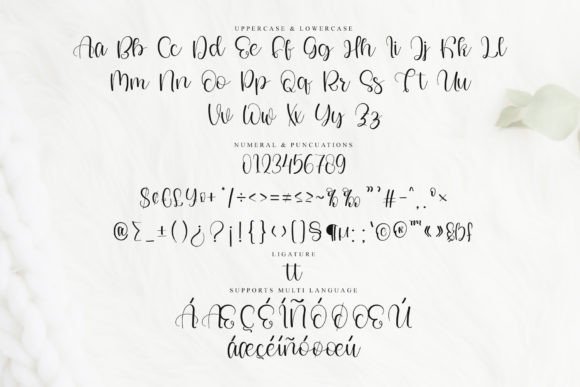 UPPERCASE & LOWERCASE
Aa Bb Cc Dd Ee Ff Gg Hh Ii Jj Kk Ll
Mm Nn Oo Pp Qq Rr Ss Tt Uu
Vv Ww Xx Yy Zz
NUMERAL & PUNCUATIONS
0123456789
$¢€£¥¤+*/÷<>=≠≤≥~%‰"'#-^.,ºx
@Σ_±()¿?¡!{}‹›[]§¶µ:;'©®™«»§ßƒ
LIGATURE
tt
SUPPORTS MULTI LANGUAGE
ÁÆÇÉÍÑÓØŒÚ
áæçéíñóøœú